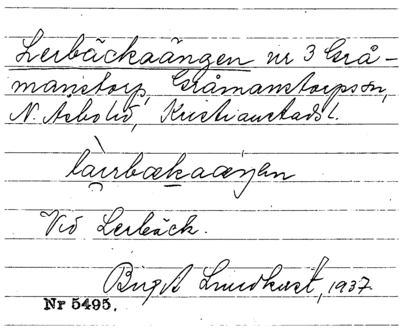 Lerbäckaängen nr 3 Grå-
manstorp, Gråmanstorpssn,
N. Åsbo hd, Kristianstads l.
làrrbækaæŋen
Vid Lerbäck.
Birgit Lundkvist, 1937
Nr 5495.